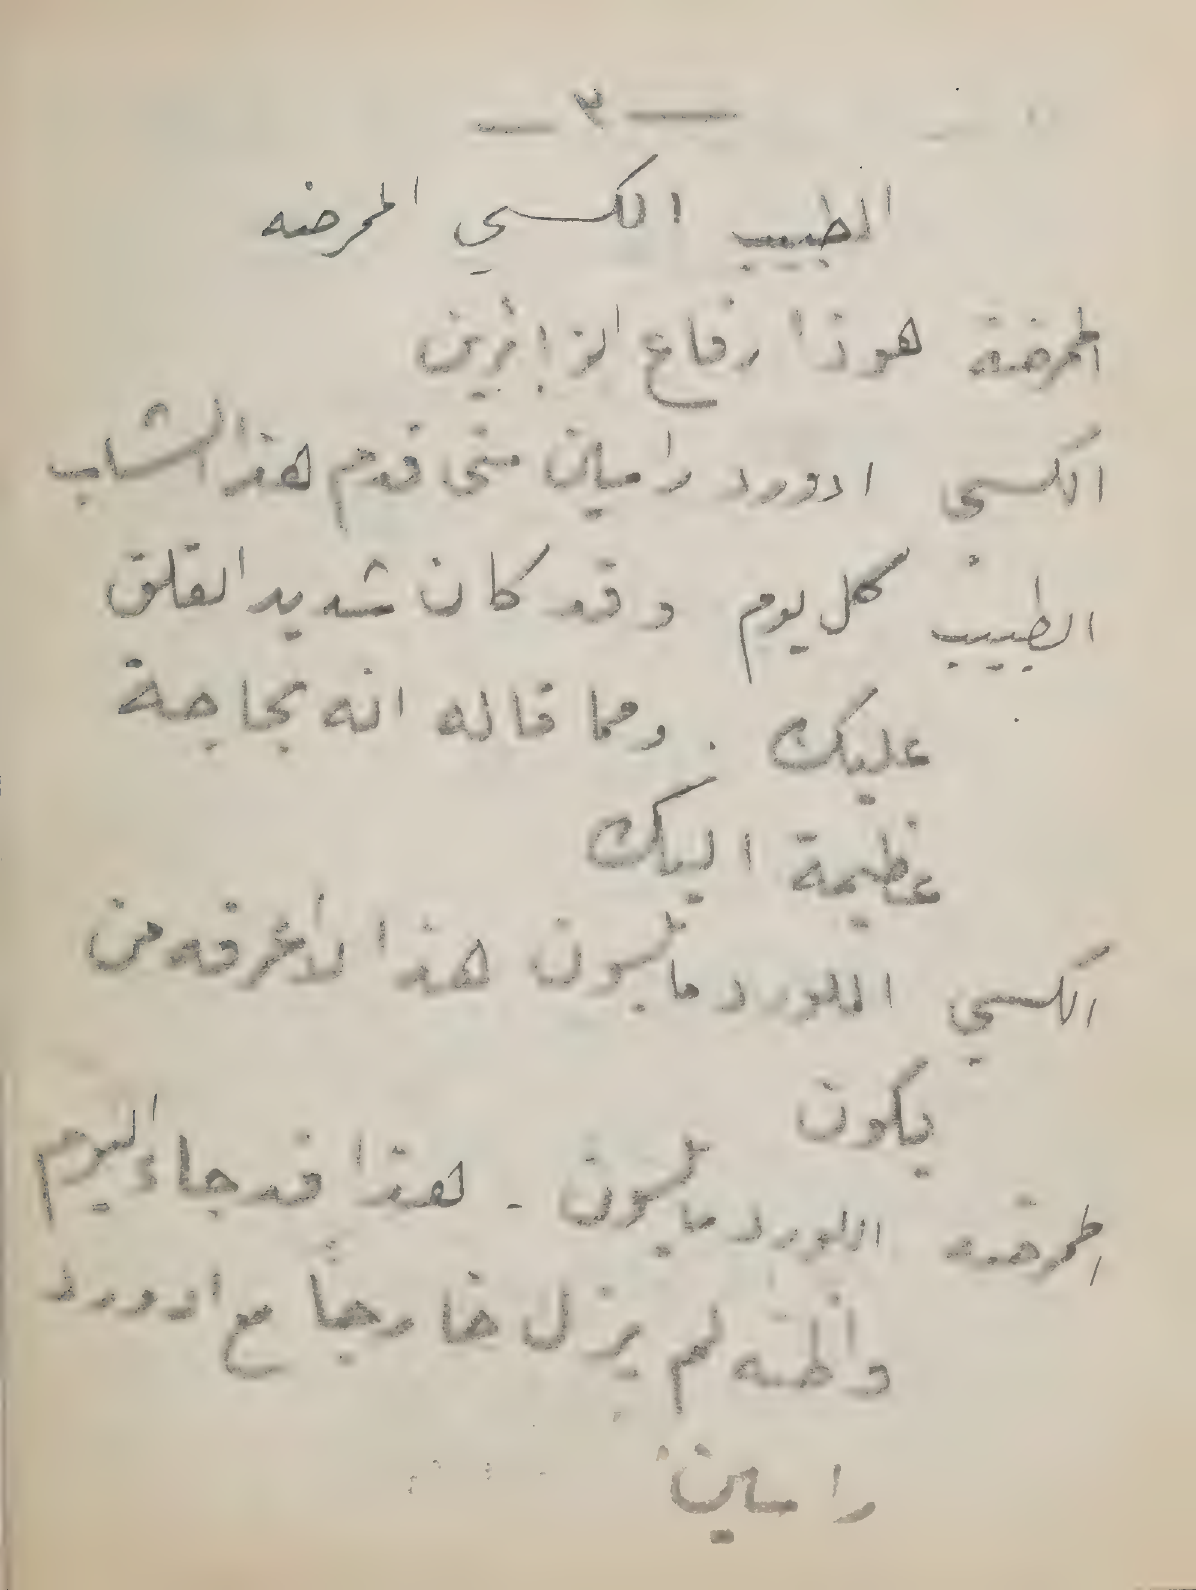 — ٣ —
الطبيب الكسي الممرضه
الممرضة هوذا رقاع الزائرين
الكسي ادورد راميان متى قدم هذا الشاب
الطبيب كل يوم وقد كان شديد القلق
عليك . ومما قاله انه بحاجة
عظيمة اليك
الكسي اللورد مايسون هذا لا أعرفه من
يكون
الممرضه اللورد مايسون . هذا قد جاء اليوم
وأظنه لم يزل خارجاً مع ادورد
راميان